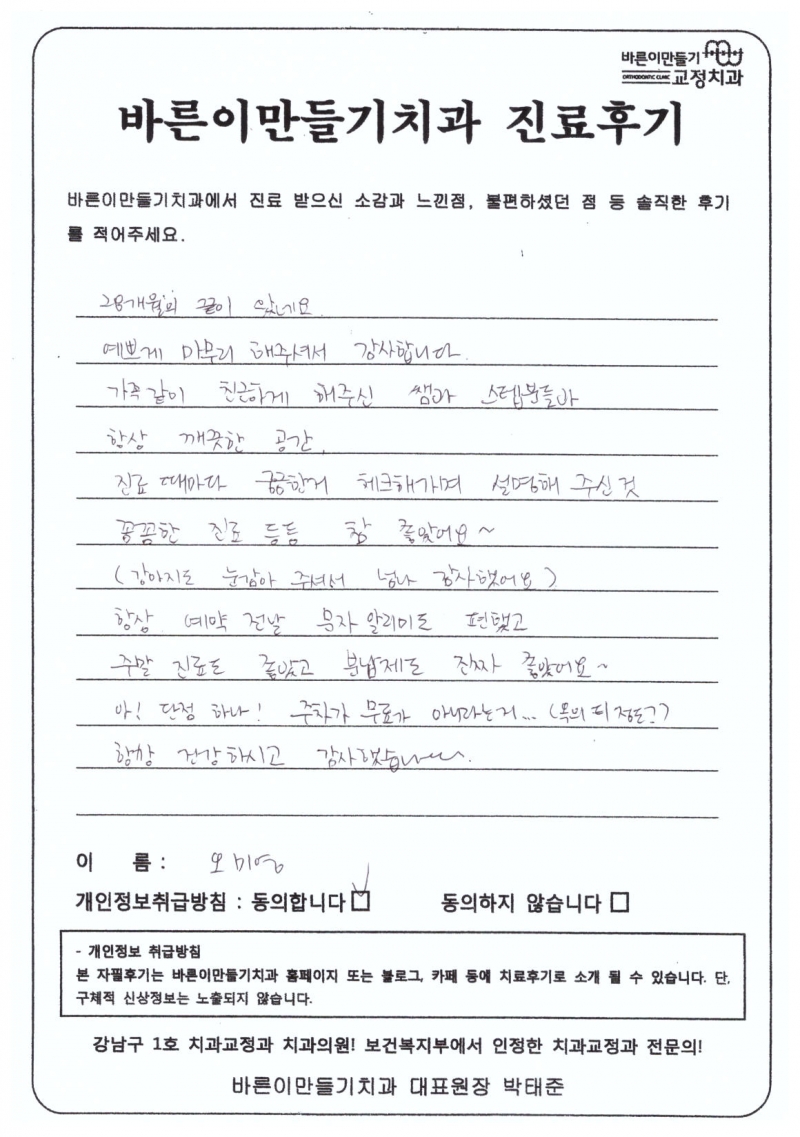 바른이만들기
ORTHODONTIC CLINIC 교정치과
바른이만들기치과 진료후기
바른이만들기치과에서 진료 받으신 소감과 느낀점, 불편하셨던 점 등 솔직한 후기
를 적어주세요.
28개월의 끝이 왔네요.
예쁘게 마무리 해주셔서 감사합니다.
가족같이 친근하게 해주신 쌤과 스텝분들과
항상 깨끗한 공간,
진료 때마다 궁금한거 체크해가며 설명해 주신 것
꼼꼼한 진료 등등 참 좋았어요~
(강아지도 눈감아 주셔서 넘나 감사했어요)
항상 예약 전날 문자 알리미도 편했고
주말 진료도 좋았고 분납제도 진짜 좋았어요~
아! 단점 하나! 주차가 무료가 아니라는거... (옥의 티 정도?)
항상 건강하시고 감사했습니다.
이 름 : 오미영
개인정보취급방침 : 동의합니다 동의하지 않습니다
- 개인정보 취급방침
본 자필후기는 바른이만들기치과 홈페이지 또는 블로그, 카페 등에 치료후기로 소개 될 수 있습니다. 단,
구체적 신상정보는 노출되지 않습니다.
강남구 1호 치과교정과 치과의원! 보건복지부에서 인정한 치과교정과 전문의!
바른이만들기치과 대표원장 박태준